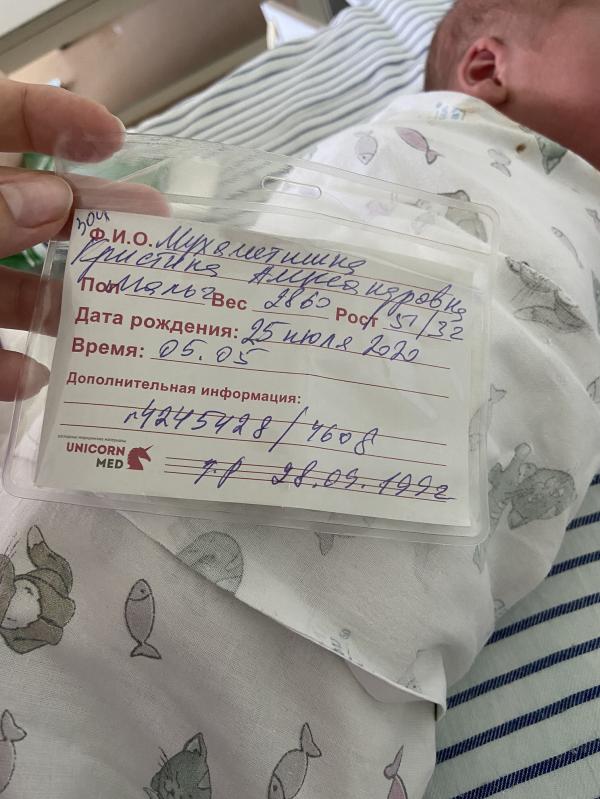 Ф.И.О. Мухаметшина
Кристина Александровна
Пол Мальч Вес 2860 Рост 51/32
Дата рождения: 25 июля 2020
Время: 05.05
Дополнительная информация:
4245428/4608
UNICORN
MED
г.р 28.09.1992